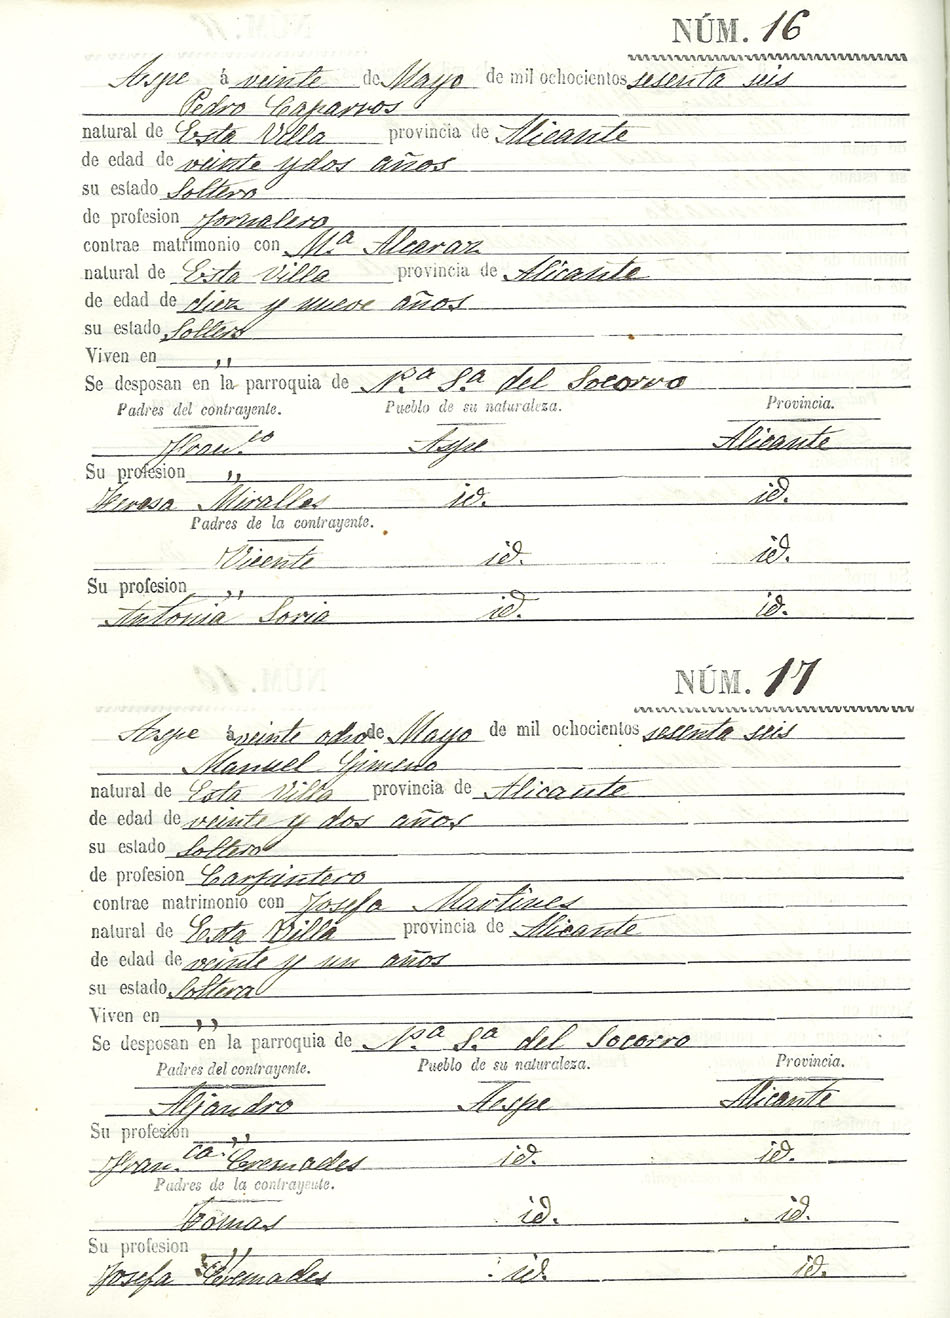 NÚM. 16
Aspe á veinte de Mayo de mil ochocientos sesenta seis
Pedro Caparros
natural de Esta Villa provincia de Alicante
de edad de veinte y dos años
su estado Soltero
de profesion Jornalero
contrae matrimonio con Mª Alcaraz
natural de Esta Villa provincia de Alicante
de edad de diez y nueve años
su estado Soltera
Viven en ,,
Se desposan en la parroquia de Nra Sª del Socorro
Padres del contrayente. Pueblo de su naturaleza. Provincia.
Fran.co Aspe Alicante
Su profesion ,,
Teresa Miralles id. id.
Padres de la contrayente.
Vicente id. id.
Su profesion ,,
Antonia Soria id. id.
NÚM. 17
Aspe á veinte ocho de Mayo de mil ochocientos sesenta seis
Manuel Gimeno
natural de Esta Villa provincia de Alicante
de edad de veinte y dos años
su estado Soltero
de profesion Carpintero
contrae matrimonio con Josefa Martines
natural de Esta Villa provincia de Alicante
de edad de veinte y un años
su estado Soltera
Viven en ,,
Se desposan en la parroquia de Nra Sª del Socorro
Padres del contrayente. Pueblo de su naturaleza. Provincia.
Aljandro Aespe Alicante
Su profesion ,,
Fran.ca Cremades id. id.
Padres de la contrayente.
Tomas id. id.
Su profesion ,,
Josefa Cremades id. id.